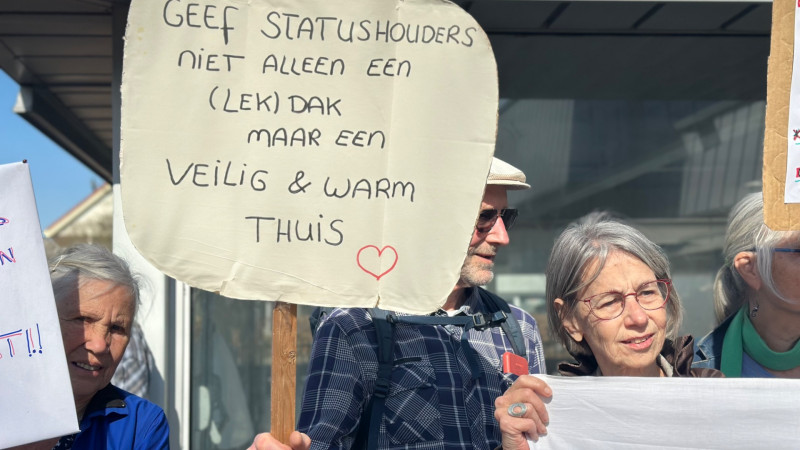 GEEF STATUSHOUDERS
NIET ALLEEN EEN
(LEK) DAK
MAAR EEN
VEILIG & WARM
THUIS